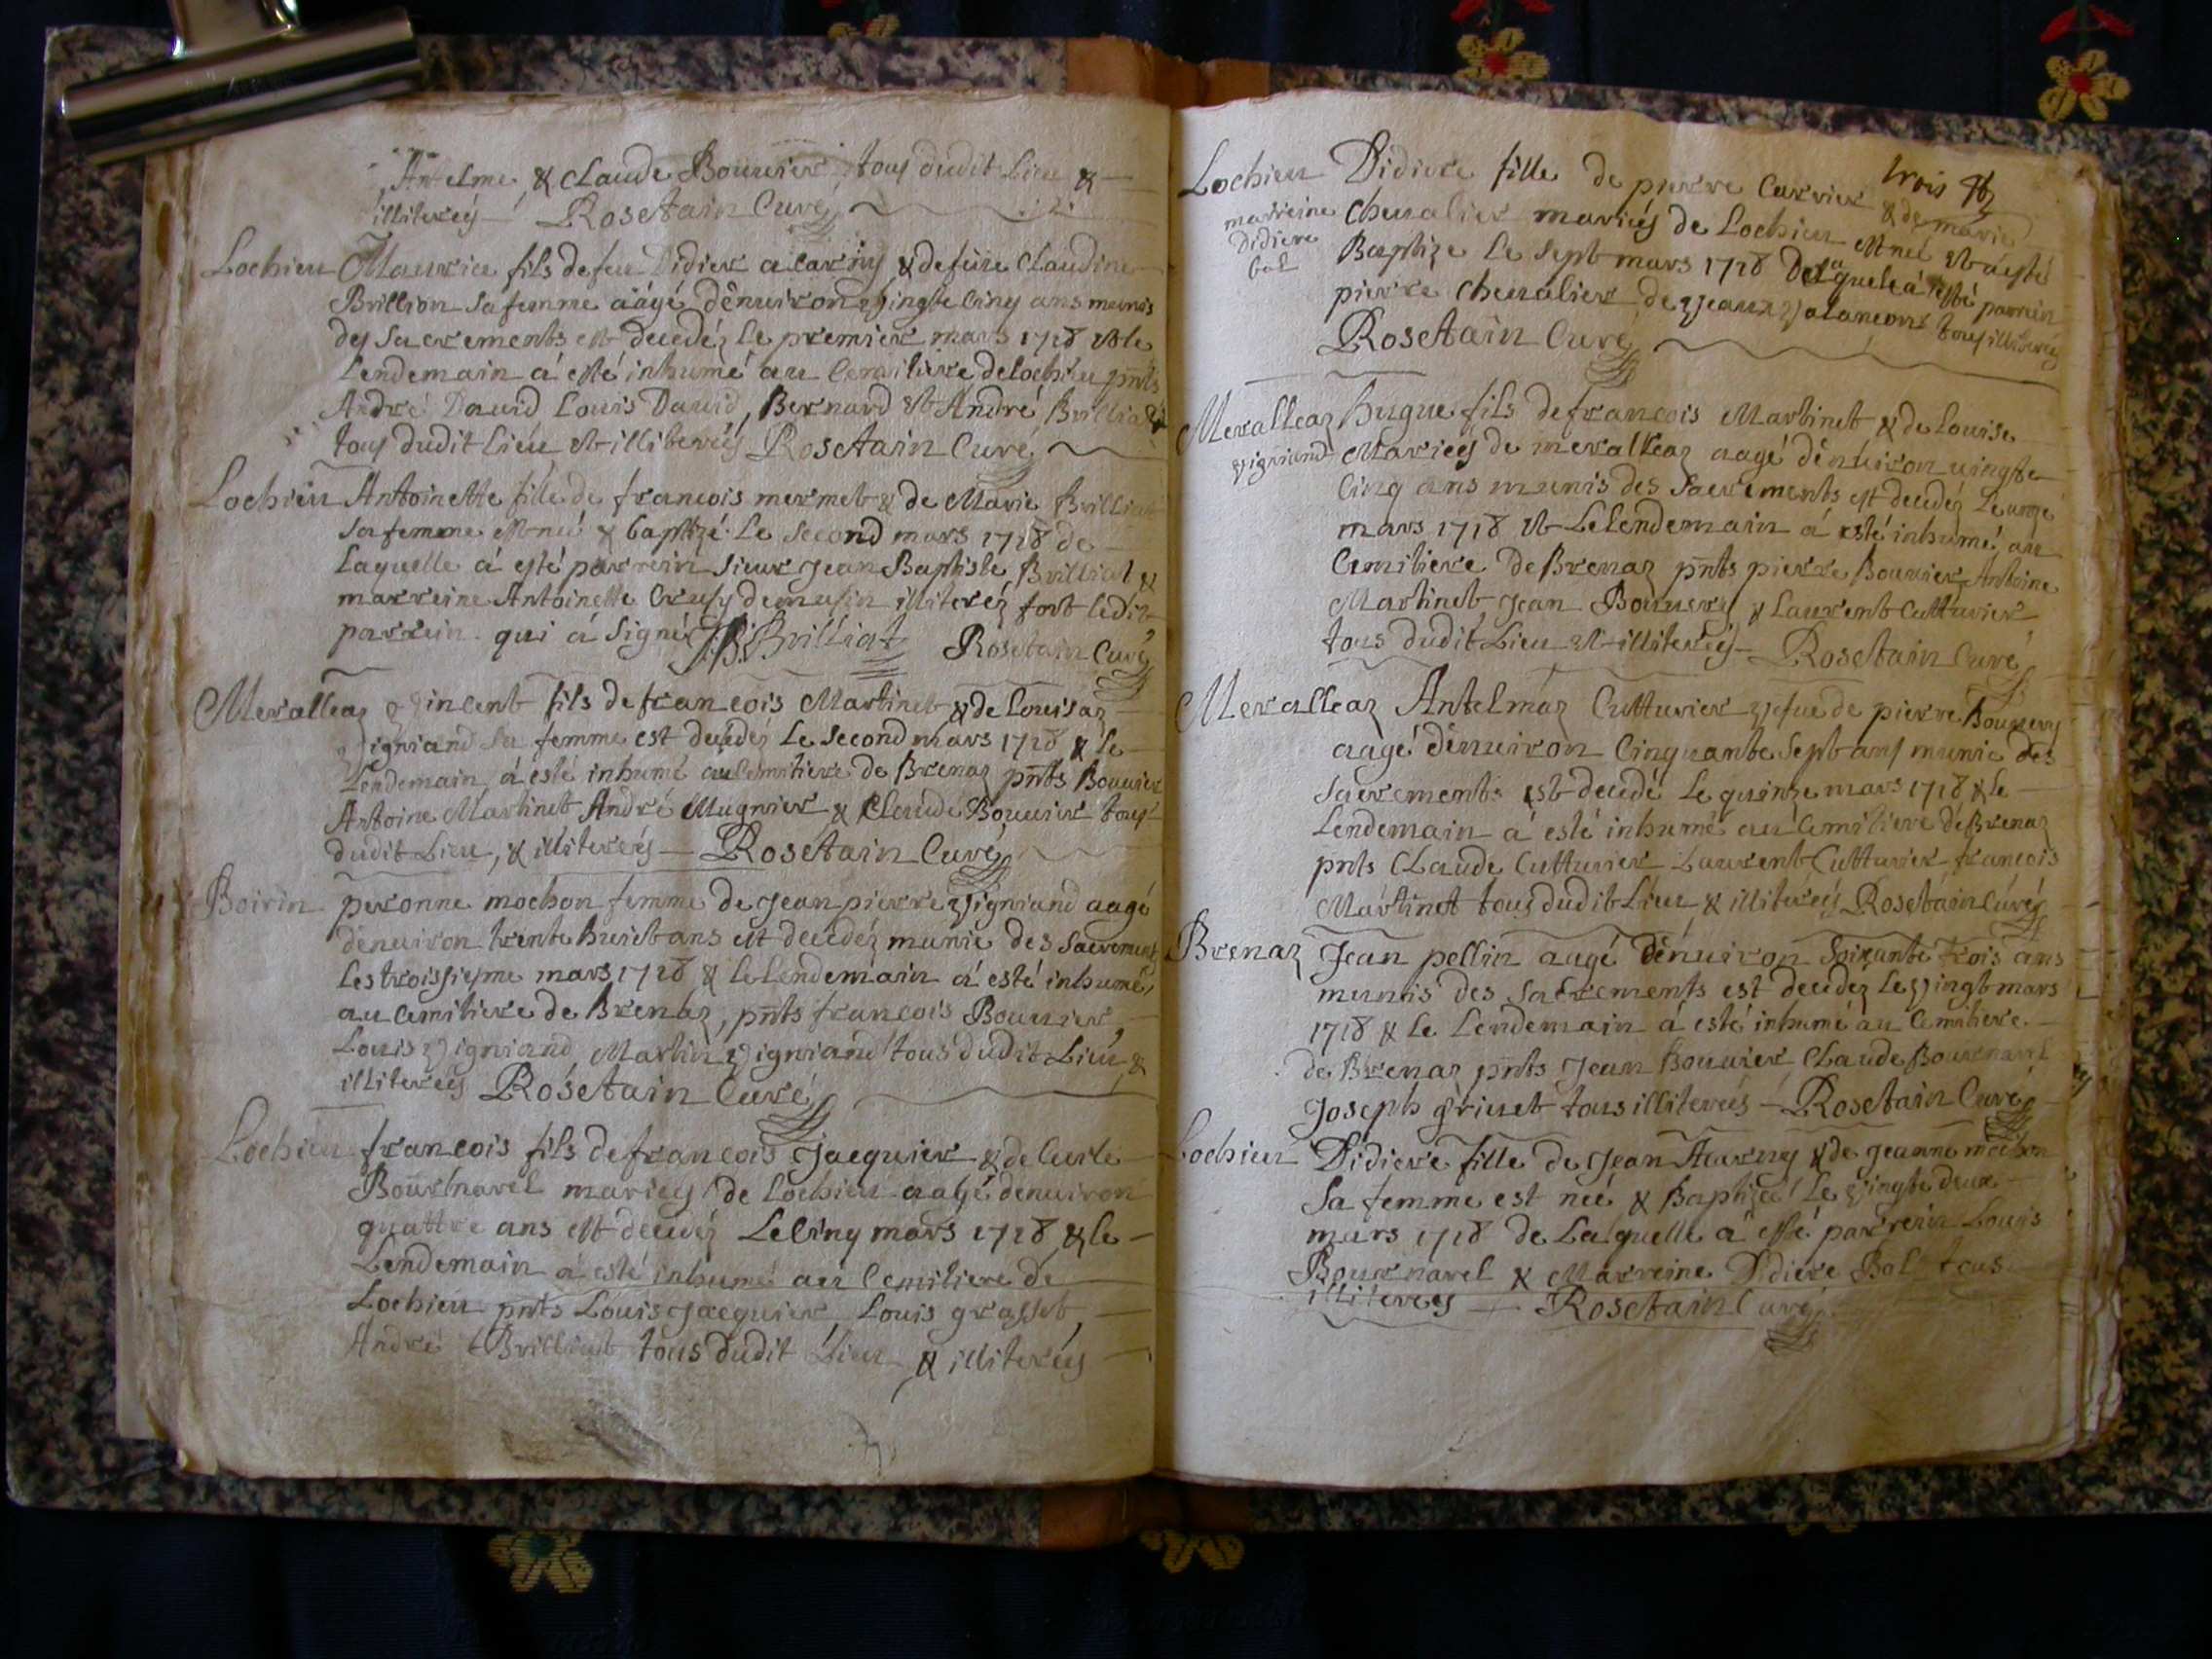 Antelme & Claude Bouuier, tous dudit Lieu &
illiterés Rosetain Curé
Lochieu Maurice fils de feu Didier acarriy & defüe Claudine
Brillion sa femme aâgé dênuiron vingte cinq ans munis
des Sacrements est decedéz le premier mars 1718 et le
Lendemain á esté inhumé au Cemitiere de Lochieu pnts
André Dauid Louis Dauid, Bernard et André Brilliat
tous dudit Lieu et illiterés Rosetain Curé
Lochieu Antoinette fille de francois mermet & de Marie Brilliat
sa femme est neé & baptizé Le second mars 1718 de
Laquelle á esté parrein sieur Jean Baptiste Brilliat &
marreine Antoinette Crusy demusin illiteréz fort ledit
parrein qui á signé J.B. Brilliat Rosetain Curé
Meralleaz vincent fils de francois Martinet & de Louisaz
vigniand sa femme est decedéz Le second mars 1718 & le
Lendemain á esté inhumé au Cemitiere de Brenaz pnts Bouuier
Antoine Martinet André Mugnier & Claude Bouuier tous
dudit Lieu, & illiterés Rosetain Curé
Boirin peronne mochon femme de Jean pierre vigniand aagé
dênuiron trente huict ans est decedéz munie des Sacrements
Les troissiesme mars 1718 & le Lendemain á esté inhumé
au Cemitiere de Brenaz, pnts francois Bouuier,
Louis vigniand, Martin vigniand tous dudit Lieu &
illiterés Rosetain Curé
Lochieu francois fils de francois Jacquier & de
Bournarel mariés de Lochieu aagé dênuiron
quattre ans est decedéz Le cinq mars 1718 & le
Lendemain á esté inhumé au Cemitiere de
Lochieu pnts Louis Jacquier Louis grasset,
André Brilliat tous dudit Lieu & illiterés
trois
Lochieu Didiere fille de pierre Carrier & de marie
marreine Didiere bal
Cheualier mariés de Lochieu est neé et á esté
Baptize Le sept mars 1718 De Laquele á esté parrein
pierre Cheualier de tous illiterés
Rosetain Curé
Meralleaz hugue fils de francois Martinet & de Louise
vigniand Mariés de meralleaz aagé dênuiron uingte
cinq ans munis des Sacrements est decedéz Le unze
mars 1718 et Le Lendemain á esté inhumé au
Cemitiere de Brenaz pnts pierre Bouuier Antoine
Martinet Jean Bouuery & Laurent Cutturier
tous dudit Lieu et illiterés Rosetain Curé
Meralleaz Antelmaz Cutturier vefue de pierre Bouuery
aagé dênuiron Cinquante Sept ans munie des
Sacrements est decedé Le quinze mars 1718 & le
Lendemain á esté inhumé au Cemitiere de Brenaz
pnts Claude Cutturier Laurent Cutturier francois
Martinet tous dudit Lieu & illiterés Rosetain Curé
Brenaz Jean pellin aagé dênuiron Soixante trois ans
munis des Sacrements est decedéz Le vingt mars
1718 & Le Lendemain á esté inhumé au Cemitiere
de Brenaz pnts Jean Bouuier Claude Bournarel
Joseph griuet tous illiterés Rosetain Curé
Lochieu Didiere fille de Jean & de Jeanne mochon
Sa femme est neé & Baptizé Le vingte deux
mars 1718 de Laquelle á esté parrein Louis
Bournarel & Marreine Didiere Bal tous
illiterés Rosetain Curé